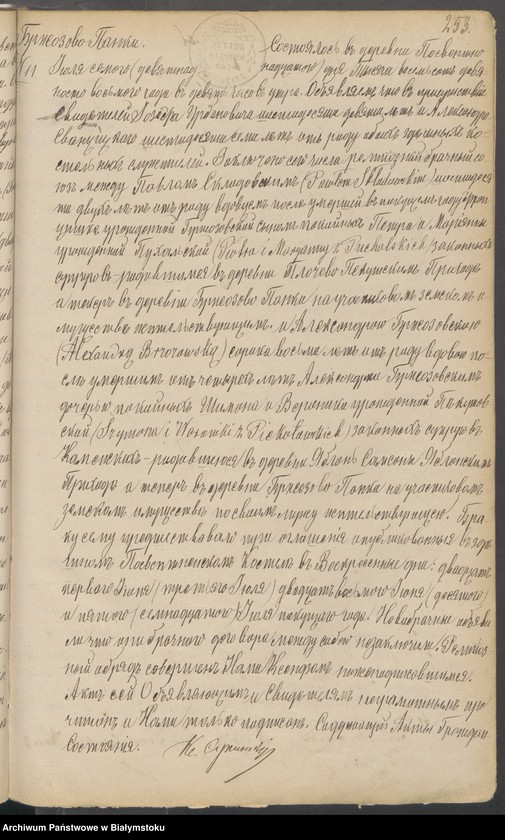 253.
Бржозово-Панки. Состоялось въ деревни Посвентно
11 Іюля семого (девятнадцатаго) дня Тысяча восемьсотъ девя
носто восьмого года въ девять часовъ утра. Объявляемъ что въ присутствіи
Свидетелей Іозефа шестидесяти девяти летъ и Александра
шестидесяти семи летъ отъ роду обоихъ здешныхъ ко
стельныхъ служителей. Заключенъ сего числа религіозный брачный со
юзъ между Павломъ Склодовскимъ (Pawłem Skłodowskim) шестидеся
ти двухъ летъ отъ роду вдовцемъ после умершей въ текущемъ году
урожденной Бржозовской сыномъ покойныхъ Петра и Маріанны
урожденной Пухальской (Piotra i Maryanny z Puchalskich) законныхъ
супруговъ-родившимся въ деревни Прихода
а теперъ въ деревни Бржозово Панки на участковомъ земскомъ и
муществе жительствующимъ. и Александрою Бржозовскою
(Alexandrą Brzozowską) сорока восьми летъ отъ роду вдовою по
сле умершимъ отъ четырехъ летъ Александре Бржозовскимъ
дочерью покойныхъ Шимона и Вероники урожденной
ской (Szymona i Weroniki z) законныхъ супруговъ
Каменскихъ-родившеюся въ деревни Яблонь Самсоны Яблонскимъ
Прихода а теперъ въ деревни Бржозово Панки на участковомъ
земскомъ имуществе по своимъ мужу жительствующею. Бра
ку сему предшествовало три оглашенія опубликованныя въ здѣ
шномъ Посвентненскомъ Костеле въ Воскресные дни: двадцать
перваго Іюня (третьяго Іюля) двадцать восьмого Іюня (десятого)
и пятого (семнадцатого) Іюля текущаго года. Новобрачные объяви
ли что они брачного договора между собою незаключили. Религіоз
ный обрядъ совершенъ Нами Ксендзомъ нижеподписавшимся.
Актъ сей Объявляющимъ и Свидетелямъ неграмотнымъ про
читанъ и Нами только подписанъ. Содержащій Акты Граждан
Состоянія. Кс.
Archiwum Państwowe w Białymstoku